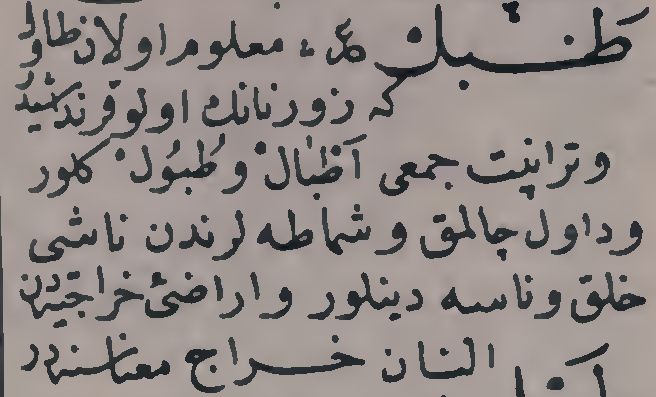 طبل ع، معلوم اولان طاول
که زورنانك اولو قرنداشیدر
وترانپت جمعی اَطْبال وطُبُول کلور
وداول چالمق وشماطه لرندن ناشی
خلق وناسه دینلور واراضئ خراجیه‌دن
النان خراج معناسنه‌در